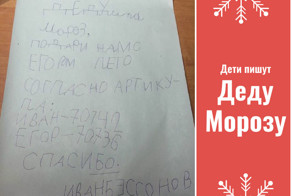 ДЕДУШКА
МОРОЗ,
ПОДАРИ НАМ С
ЕГОРМ ЛЕГО
СОГЛАСНО АРТИКУ-
ЛА:
ИВАН-70747
ЕГОР-70736
СПАСИБО.
ИВАН БЭССОНОВ
Дети пишут
Деду
Морозу